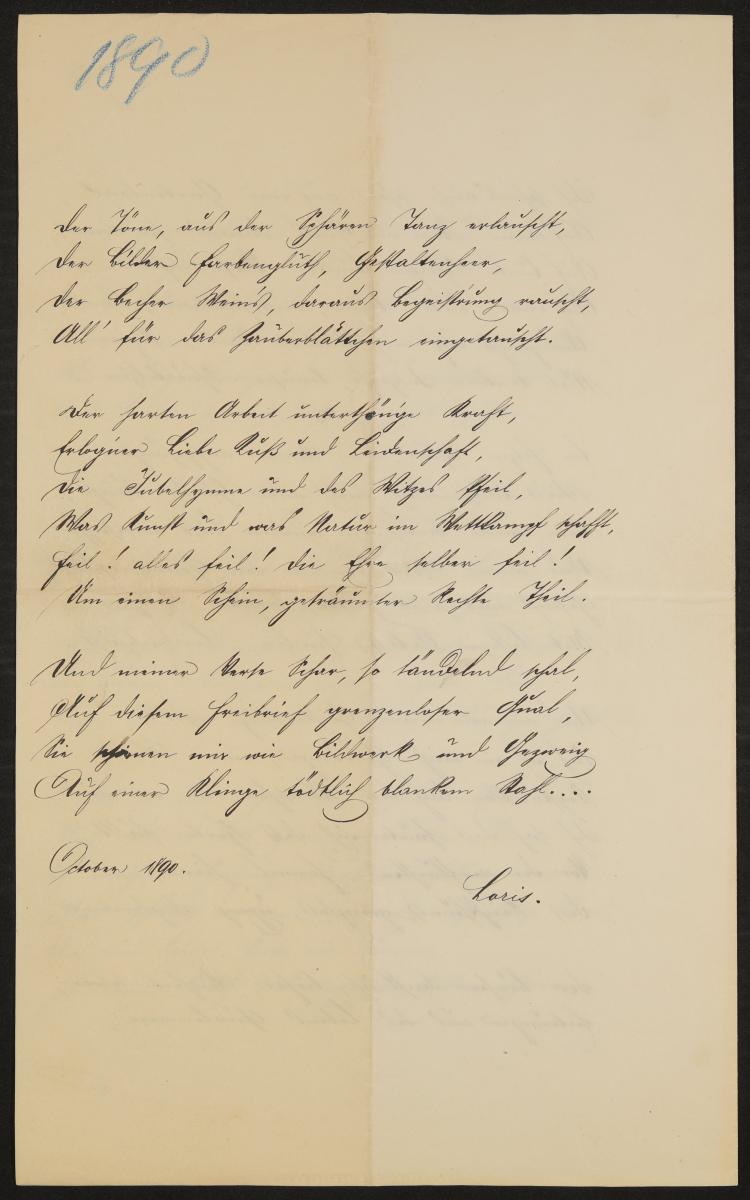 1890
Der Töne, aus der Sphären Tanz erlauscht,
Der Bilder Farbengluth, Gestaltenheer,
Der Becher Wein's, daraus Begeist'rung rauscht,
All' für das Zauberblättchen eingetauscht.
Der harten Arbeit unterthän'ge Kraft,
Erlog'ner Liebe Kuß und Leidenschaft,
Die Jubelhymne und des Witzes Pfeil,
Was Kunst und was Natur im Wettkampf schafft,
Feil! alles feil! die Ehre selber feil!
Um einen Schein, geträumter Rechte Theil.
Und meiner Verse Schar, so tändelnd schal,
Auf diesem Freibrief grenzenloser Qual,
Sie schienen mir wie Bildwerk und Gezweig
Auf einer Klinge tödtlich blankem Stahl....
October 1890.
Loris.